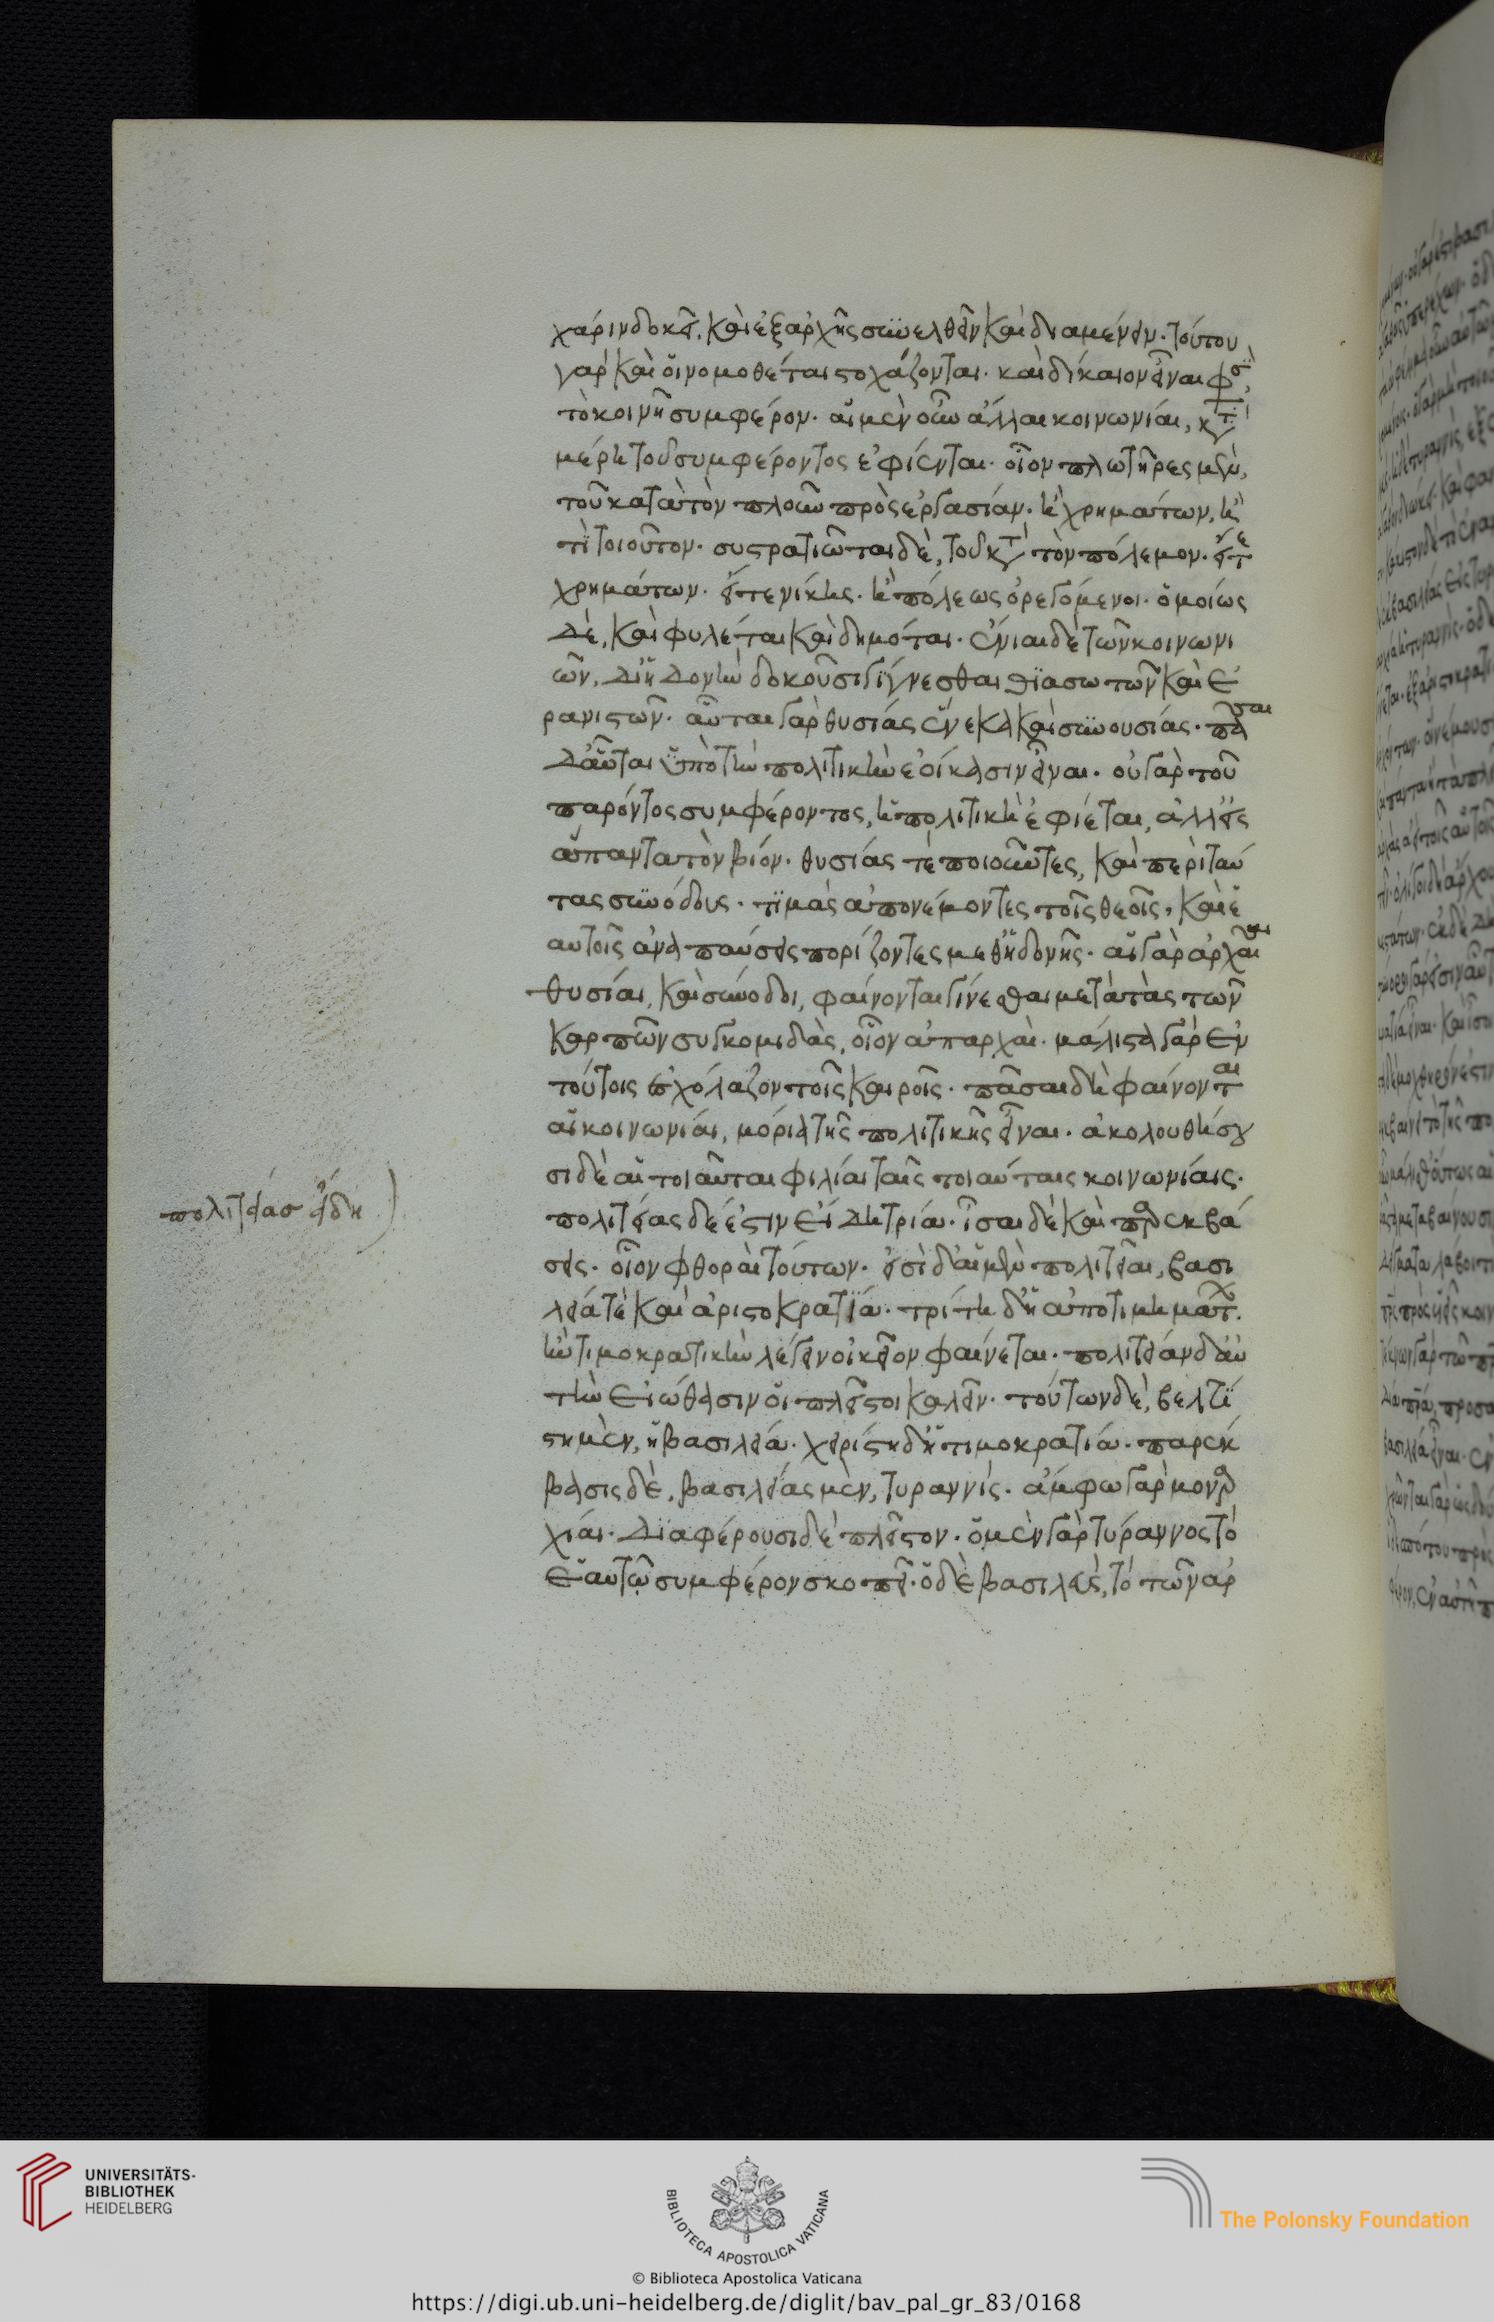 χάριν δοκεῖ, καὶ ἐξ ἀρχῆς συνελθεῖν καὶ διαμένειν. τούτου
γὰρ καὶ οἱ νομοθέται στοχάζονται. καὶ δίκαιον εἶναι φασὶ
τὸ κοινῇ συμφέρον. αἱ μὲν οὖν ἄλλαι κοινωνίαι, κατὰ
μέρη τοῦ συμφέροντος ἐφίενται. οἷον πλωτῆρες μὲν,
τοῦ κατὰ τὸν πλοῦν πρὸς ἐργασίαν. ἢ χρημάτων, ἤ
τι τοιοῦτον. συστρατιῶται δὲ, τοῦ κατὰ τὸν πόλεμον. εἴτε
χρημάτων. εἴτε νίκης. ἢ πόλεως ὀρεγόμενοι. ὁμοίως
δὲ, καὶ φυλέται καὶ δημόται. ἔνιαι δὲ τῶν κοινωνι
ῶν, δι ἡδονὴν δοκοῦσι γίγνεσθαι θιασωτῶν καὶ ἐ
ρανιστῶν. αὗται γὰρ θυσίας ἕνεκα καὶ συνουσίας. πᾶσαι
δ' αὗται ὑπὸ τὴν πολιτικὴν ἐοίκασιν εἶναι. οὐ γὰρ τοῦ
παρόντος συμφέροντος, ἡ πολιτικὴ ἐφίεται, ἀλλ' εἰς
ἅπαντα τὸν βίον. θυσίας τὲ ποιοῦντες, καὶ περὶ ταύ
τας συνόδους. τιμὰς ἀπονέμοντες τοῖς θεοῖς, καὶ ἑ
αυτοῖς ἀναπαύσεις πορίζοντες μεθ' ἡδονῆς. αἱ γὰρ ἀρχαῖαι
θυσίαι, καὶ σύνοδοι, φαίνονται γίνεσθαι μετὰ τὰς τῶν
καρπῶν συγκομιδὰς, οἷον ἀπαρχαὶ. μάλιστα γὰρ ἐν
τούτοις ἐσχόλαζον τοῖς καιροῖς. πᾶσαι δὴ φαίνονται
αἱ κοινωνίαι, μόρια τῆς πολιτικῆς εἶναι. ἀκολουθήσου
σι δὲ αἱ τοιαῦται φιλίαι ταῖς τοιαύταις κοινωνίαις.
πολιτείας δέ ἐστιν εἴδη τρία. ἴσαι δὲ καὶ παρεκβά
σεις. οἷον φθοραὶ τούτων. εἰσὶ δ' αἱ μὲν πολιτεῖαι, βασι
λεία τὲ καὶ ἀριστοκρατία. τρίτη δ' ἡ ἀπὸ τιμημάτων.
ἣν τιμοκρατικὴν λέγειν οἰκεῖον φαίνεται. πολιτείαν δ' αὐ
τὴν εἰώθασιν οἱ πλεῖστοι καλεῖν. τούτων δὲ, βελτί
στη μὲν, ἡ βασιλεία. χειρίστη δ' ἡ τιμοκρατία. παρέκ
βασις δὲ, βασιλείας μὲν, τυραννίς. ἄμφω γὰρ μοναρ
χίαι. διαφέρουσι δὲ πλεῖστον. ὁ μὲν γὰρ τύραννος τὸ
ἑαυτῷ συμφέρον σκοπεῖ. ὁ δὲ βασιλεὺς, τὸ τῶν ἀρ
πολιτείας εἴδη
UNIVERSITÄTS-
BIBLIOTHEK
HEIDELBERG
BIBLIOTECA APOSTOLICA VATICANA
The Polonsky Foundation
© Biblioteca Apostolica Vaticana
https://digi.ub.uni-heidelberg.de/diglit/bav_pal_gr_83/0168